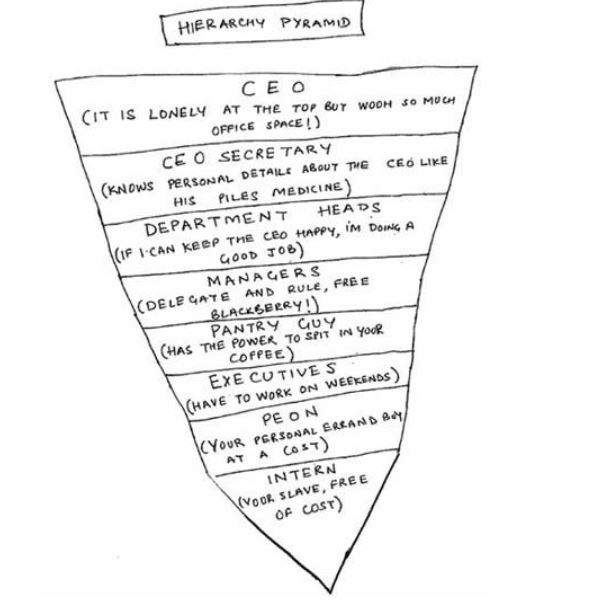 HIERARCHY PYRAMID
CEO
(IT IS LONELY AT THE TOP BUT WOOH SO MUCH
OFFICE SPACE!)
CEO SECRETARY
(KNOWS PERSONAL DETAILS ABOUT THE CEO LIKE
HIS PILES MEDICINE)
DEPARTMENT HEADS
(IF I CAN KEEP THE CEO HAPPY, I'M DOING A
GOOD JOB)
MANAGERS
(DELEGATE AND RULE, FREE
BLACKBERRY!)
PANTRY GUY
(HAS THE POWER TO SPIT IN YOUR
COFFEE)
EXECUTIVES
(HAVE TO WORK ON WEEKENDS)
PEON
(YOUR PERSONAL ERRAND BOY
AT A COST)
INTERN
(YOUR SLAVE, FREE
OF COST)